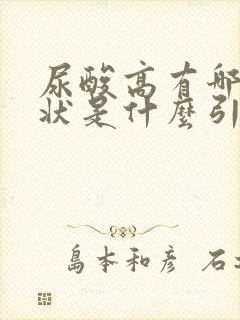 尿酸高有哪
状是什麼引
島本和彥 石